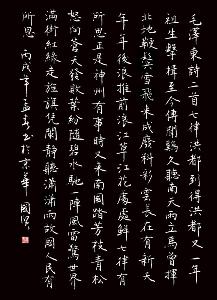 毛澤東詩二首七律洪都到得洪都又一年
祖生擊楫至今傳聞鷄久聽南天雨立馬曾揮
北地鞭鬢雪飛來成廢料彩雲長在有新天
年年後浪推前浪江草江花處處鮮七律有
所思正是神州有事時又來南國踏芳枝青松
怒向蒼天發敗葉紛隨碧水馳一陣風雷驚世界
滿街紅綠走旌旗憑闌靜聽瀟瀟雨故國人民有
所思 丙戌年孟春書於京華 國